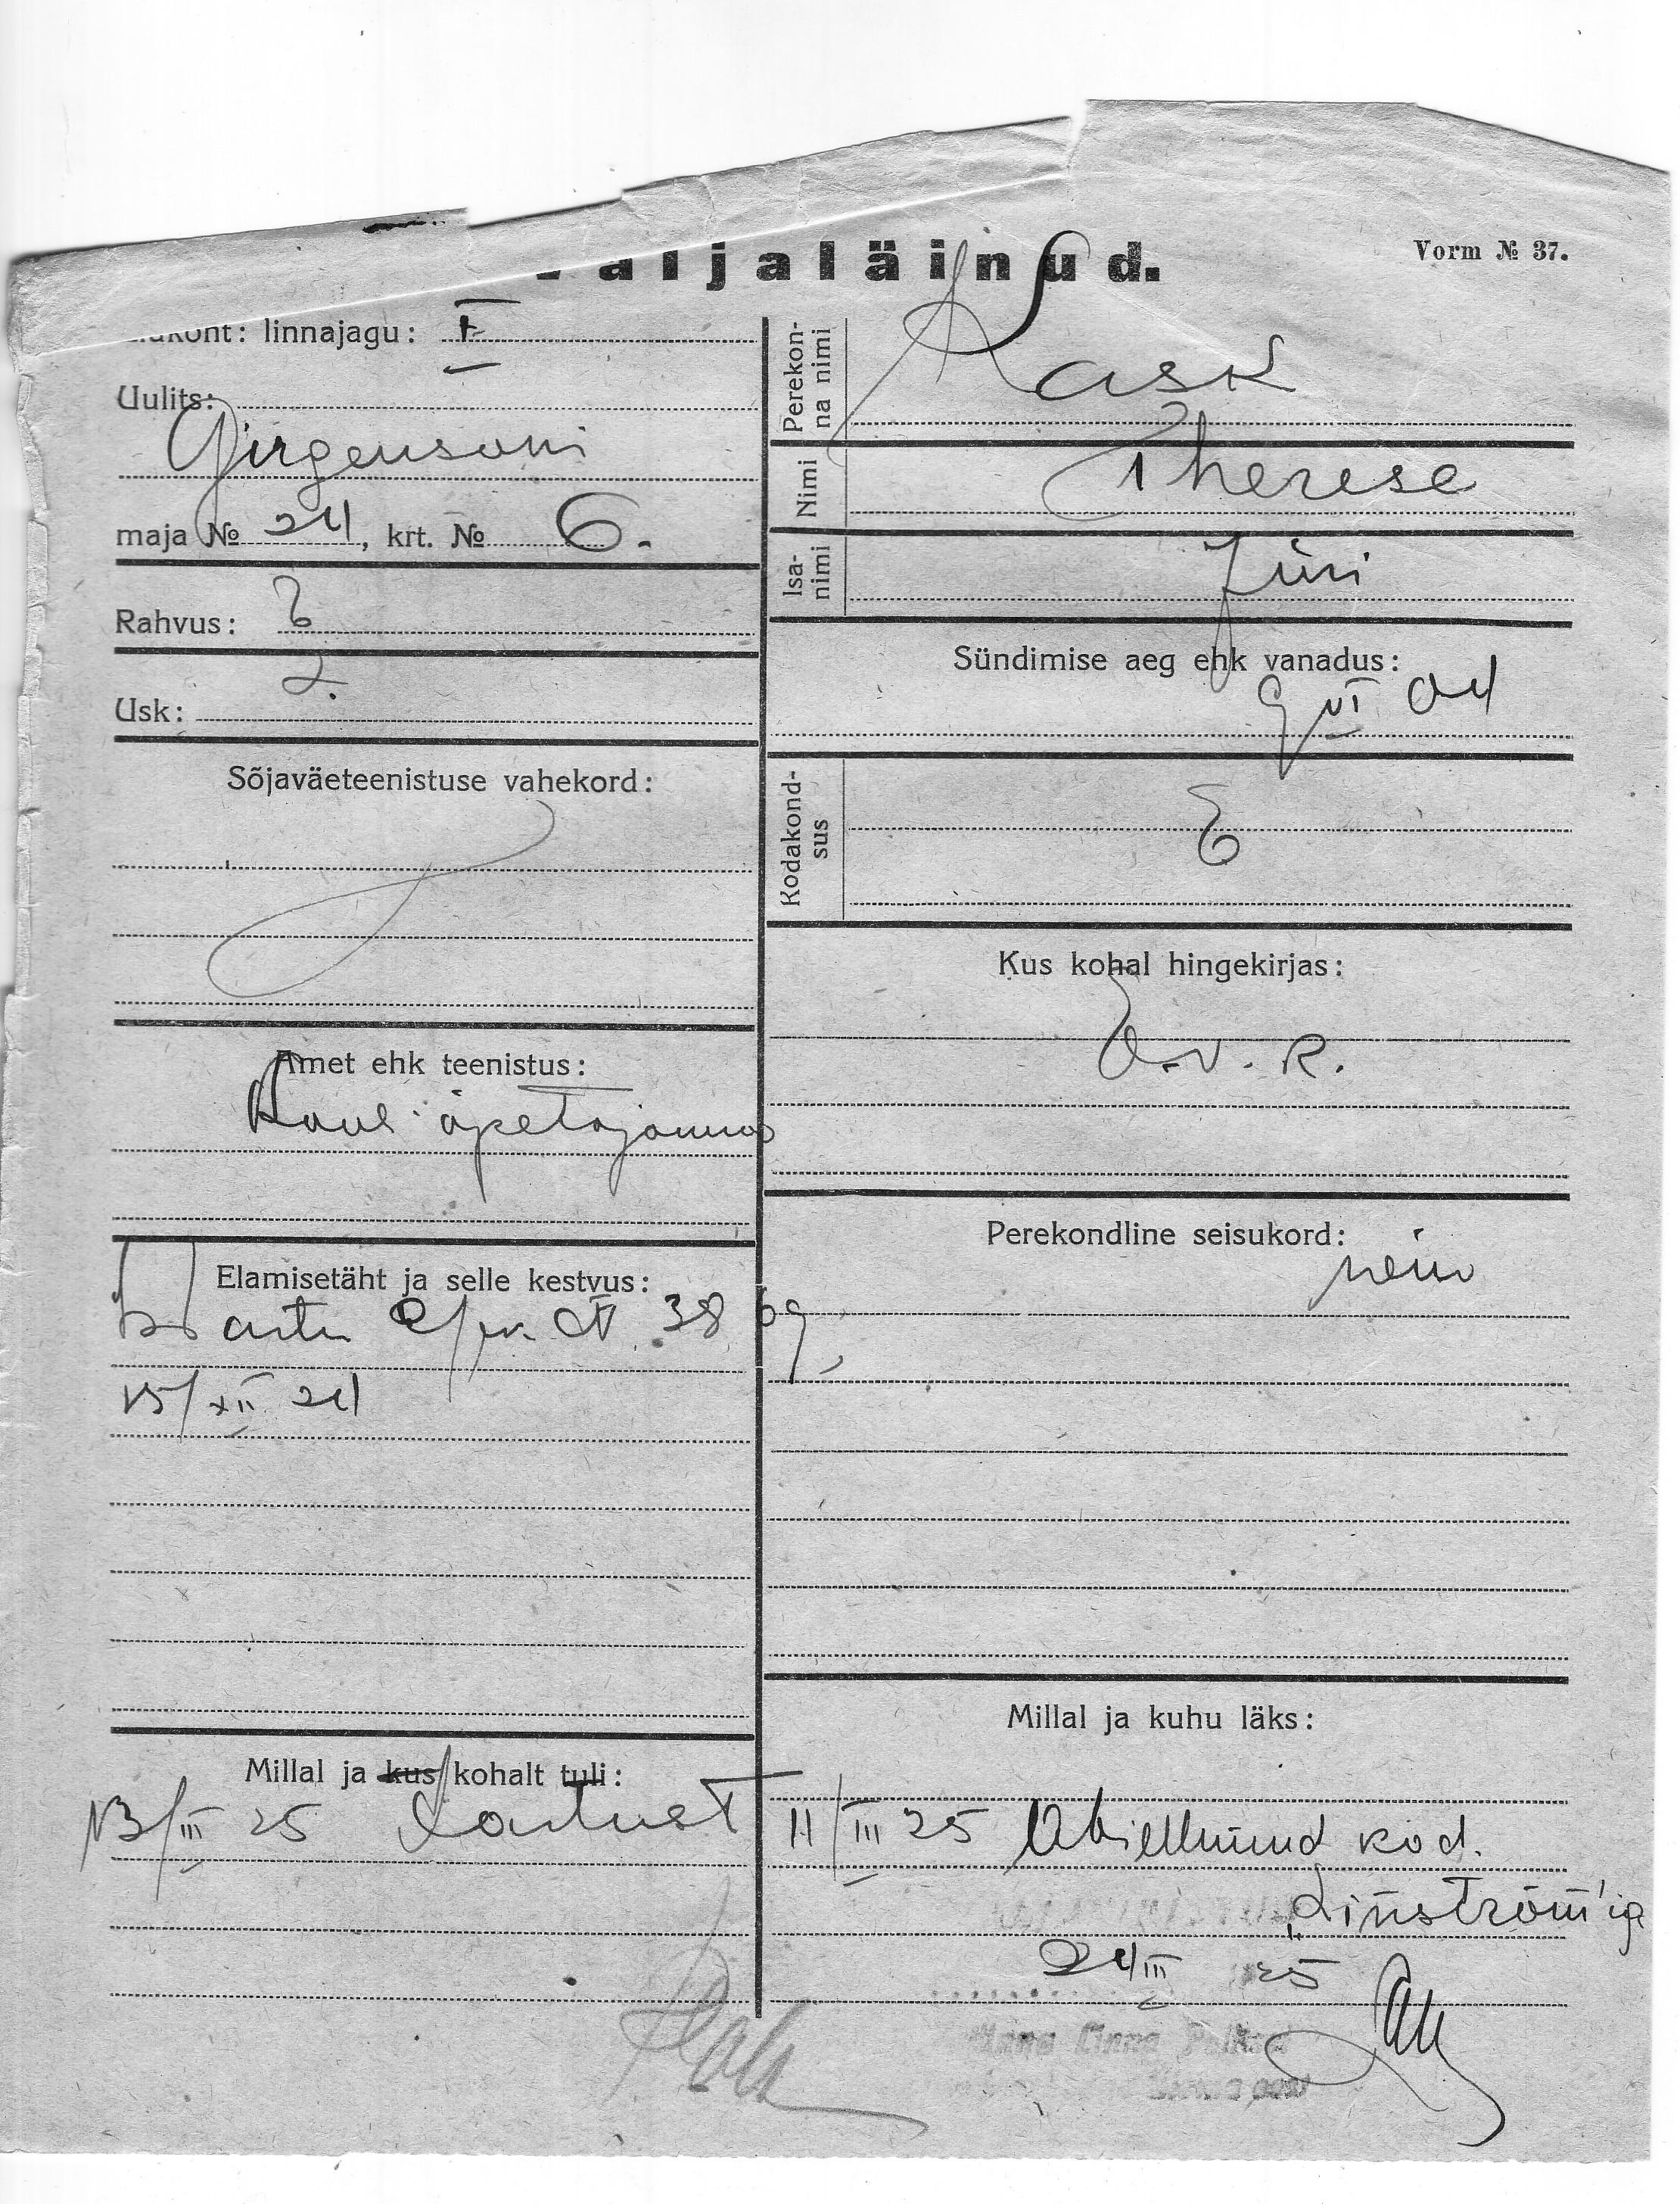 Väljaläinud.
Vorm № 37.
linnajagu: I
Uulits:
Girgensoni
maja № 24, krt. № 6.
Rahvus: E
Usk: L.
Sõjaväeteenistuse vahekord:
Amet ehk teenistus:
õpetajanna
Elamisetäht ja selle kestvus:
Tartu 3869,
15/XII 24
Millal ja kus kohalt tuli:
13/III 25 Tartust
Perekonna nimi
Kask
Nimi
Therese
Isanimi
Jüri
Sündimise aeg ehk vanadus:
9 VI 04
Kodakondsus
E
Kus kohal hingekirjas:
E.V.R.
Perekondline seisukord:
neiu
Millal ja kuhu läks:
11/III 25 Abiellunud kod.
Linström'iga
24/III 25